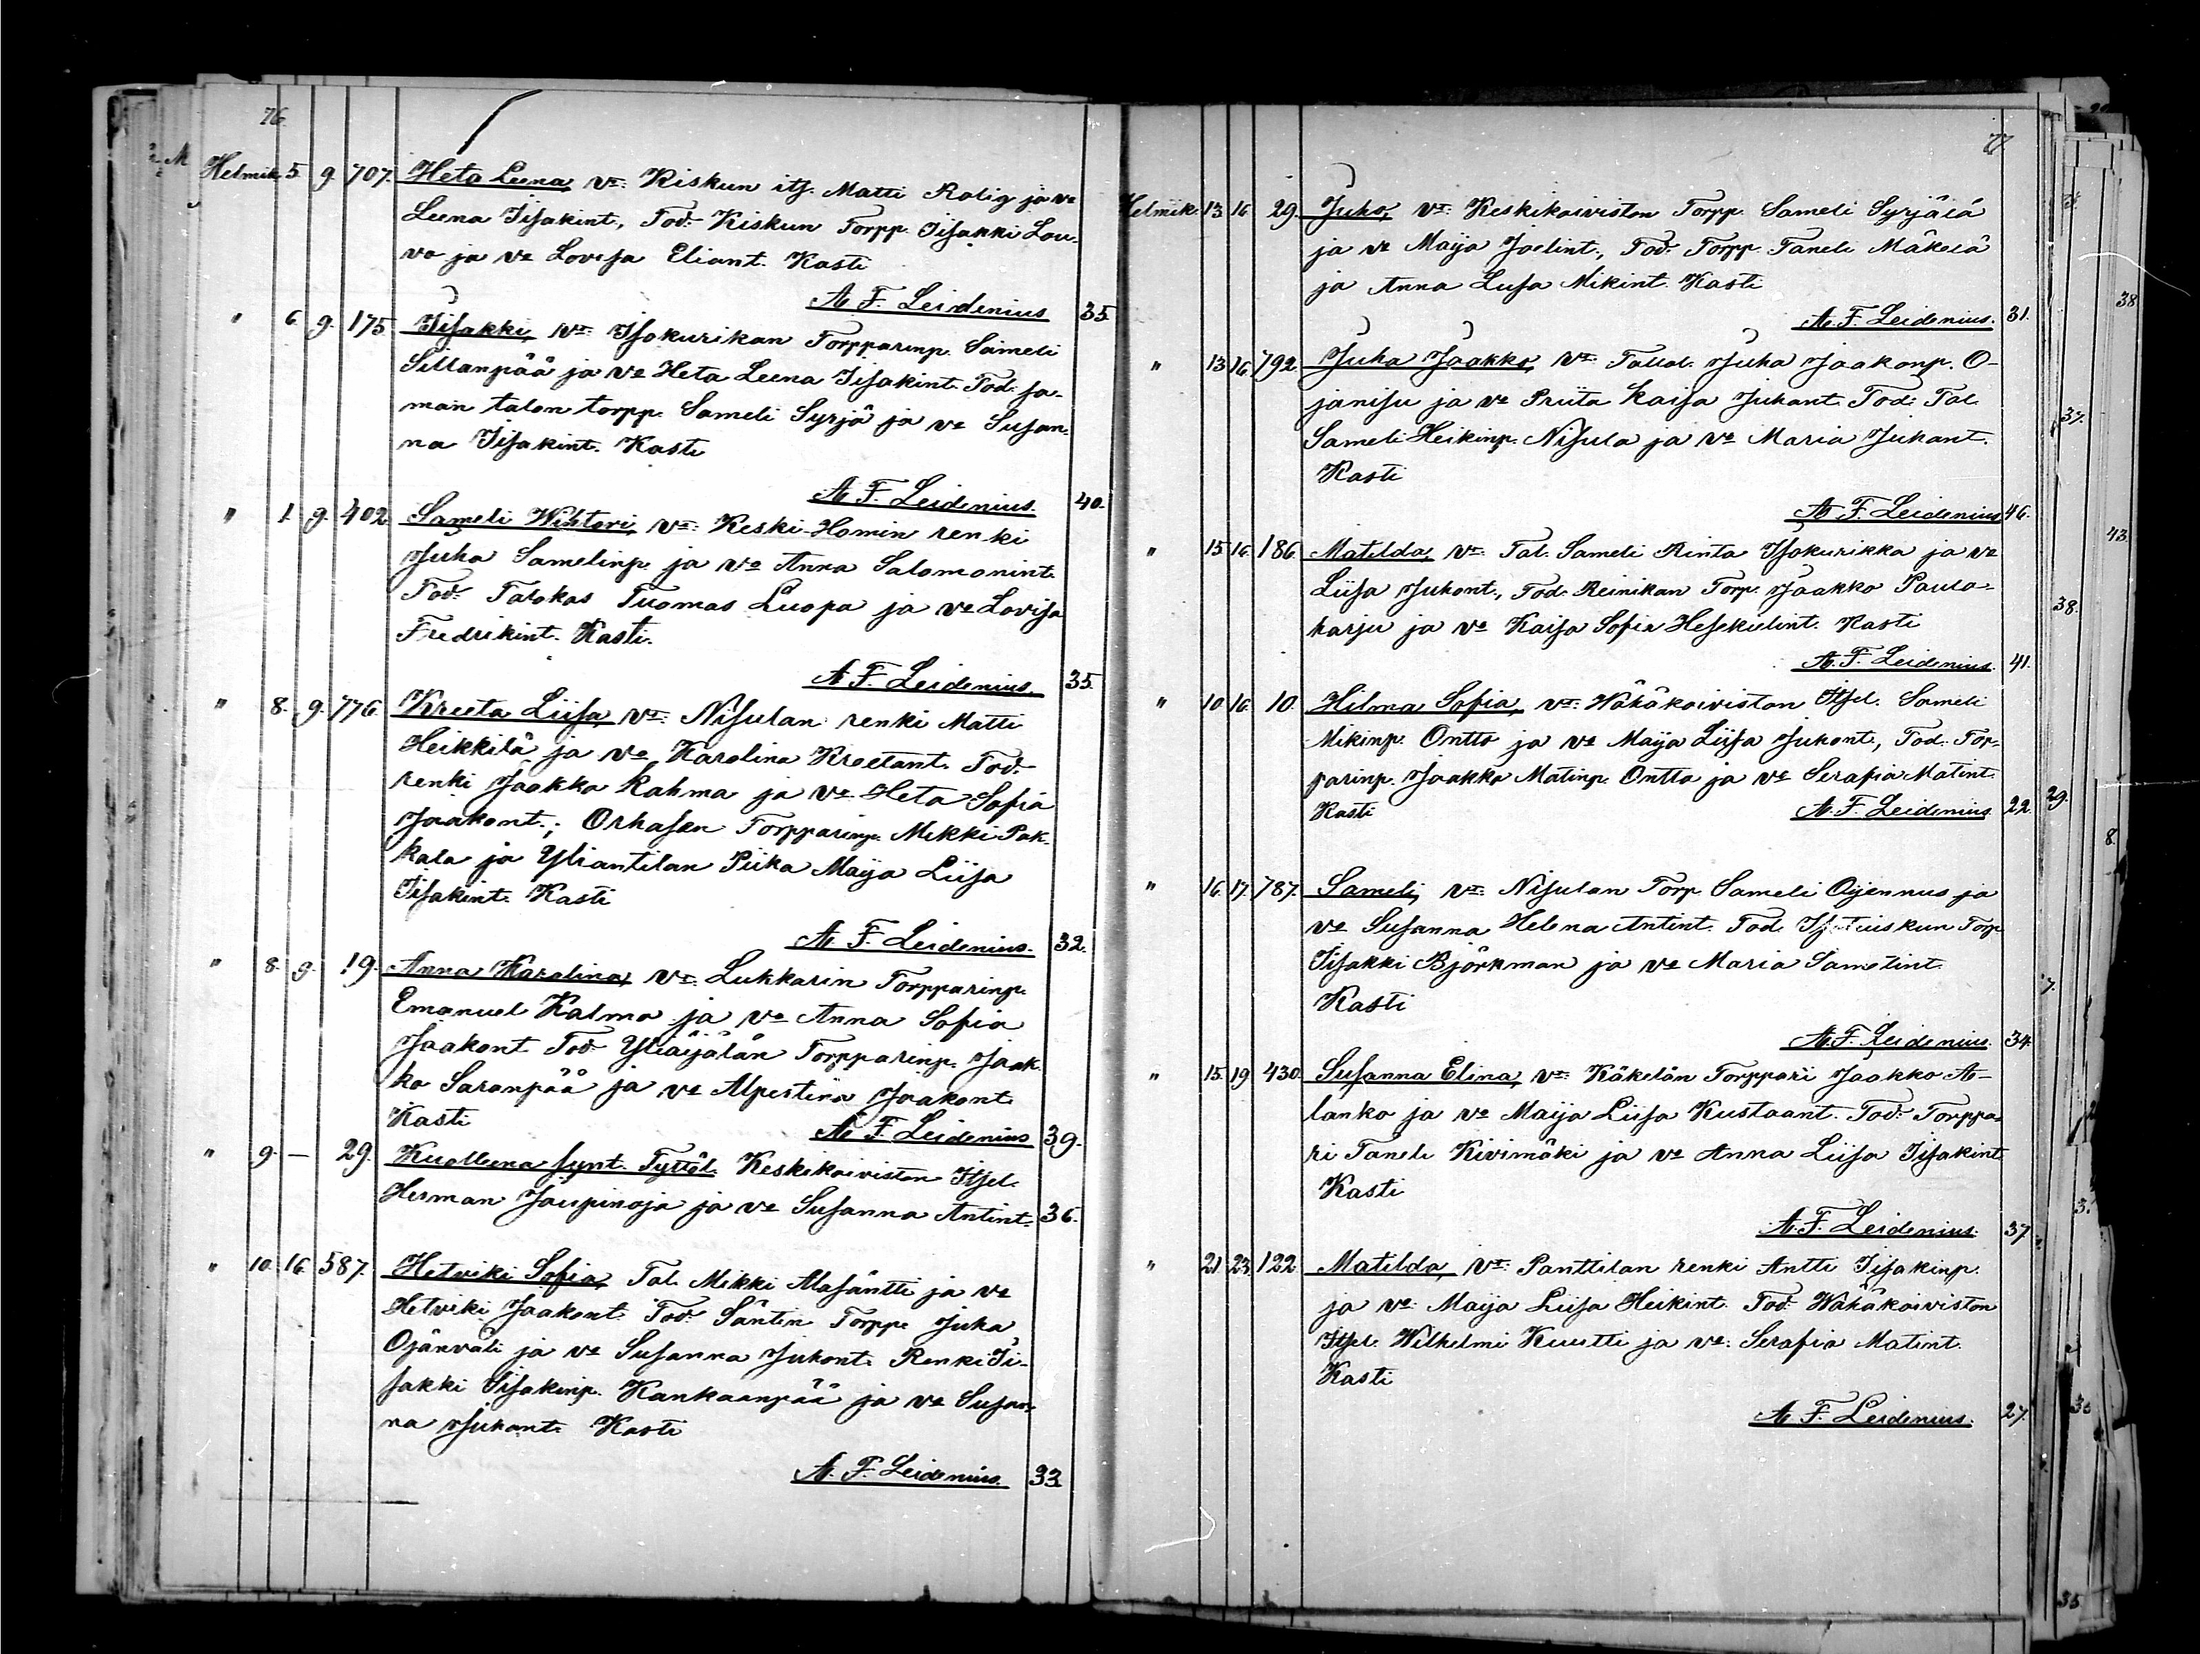 76.
Helmik. 5. 9. 707. Heta Leena, vt: Kiskun itj. Matti Rolig ja va
Leena Iisakint., Tod: Kiskun Torpp. Iisakki Lou-
vo ja va Lovisa Eliant. Kasti
A. F. Leidenius 35.
" 6. 9. 175. Iisakki, vt: Isokurikan Torpparinp. Sameli
Sillanpää ja va Heta Leena Iisakint. Tod: sa-
man talon torpp. Sameli Syrjä ja va Susan-
na Iisakint. Kasti
A. F. Leidenius. 40.
" 1. 9. 402. Sameli Wihtori, vt: Keski-Homin renki
Juha Samelinp. ja va Anna Salomonint.
Tod: Talokas Tuomas Luopa ja va Lovisa
Fredrikint. Kasti.
A. F. Leidenius. 35.
" 8. 9. 776. Kreeta Liisa, vt: Nisulan renki Matti
Heikkilä ja va Karolina Kreetant. Tod:
renki Jaakko Rahma ja va Heta Sofia
Jaakont.; Orhasen Torpparinp. Mikki Pak-
kala ja Yliantilan Piika Maija Liisa
Iisakint. Kasti
A. F. Leidenius. 32.
" 8. 9. 19. Anna Karolina, vt: Lukkarin Torpparinp.
Emanuel Kalma ja va Anna Sofia
Jaakont. Tod: Yliäijälän Torpparinp. Jaak-
ko Saranpää ja va Alpertina Jaakont.
Kasti A. F. Leidenius 39.
" 9. — 29. Kuolleena synt. Tyttöl. Keskikoiviston Itsel.
Herman Jaupinoja ja va Susanna Antint. 36.
" 10. 16. 587. Hetviki Sofia, Tal. Mikki Alasäntti ja va
Hetviki Jaakont. Tod: Säntin Torpp. Juha
Ojänväli ja va Susanna Juhont. Renki Ii-
sakki Iisakinp. Kankaanpää ja va Susan-
na Juhant. Kasti
A. F. Leidenius. 33
77
Helmik. 13 16 29. Juho, vt: Keskikoiviston Torpp. Sameli Syrjälä
ja va Maija Joelint., Tod: Torpp. Taneli Mäkelä
ja Anna Lusa Mikint. Kasti
A. F. Leidenius. 31.
" 13 16 792. Juha Jaakko, vt: Juha Jaakonp. O-
janisu ja va Priita Kaisa Juhant. Tod: Tal.
Sameli Heikinp. Nisula ja va Maria Juhant.
Kasti
A. F. Leidenius 46.
" 15 16. 186. Matilda, vt: Tal. Sameli Rinta Isokurikka ja va
Liisa Juhont., Tod: Reinikan Torp. Jaakko Paulo-
harju ja va Kaisa Sofia Hesekielint. Kasti
A. F. Leidenius. 41.
" 10. 16. 10. Hilma Sofia, vt: Wähäkoiviston Itsel. Sameli
Mikinp. Ontto ja va Maija Liisa Juhont., Tod: Tor-
parinp. Jaakko Matinp. Ontto ja va Serafia Matint.
Kasti A. F. Leidenius. 22.
" 16. 17. 787. Sameli, vt: Nisulan Torp. Sameli Ojennus ja
va Susanna Helena Antint. Tod: Torp
Iisakki Björkman ja va Maria Samelint.
Kasti
A. F. Leidenius. 34.
" 15. 19 430. Susanna Elina, vt: Käkelän Torppari Jaakko A-
lanko ja va Maija Liisa Kustaant. Tod: Torppa-
ri Taneli Kivimäki ja va Anna Liisa Iisakint
Kasti
A. F. Leidenius. 37
" 21. 23. 122. Matilda, vt: Panttilan renki Antti Iisakinp.
ja va: Maija Liisa Heikint. Tod: Wähäkoiviston
Itsel. Wilhelmi Kuutti ja va: Serafia Matint.
Kasti
A. F. Leidenius. 27.